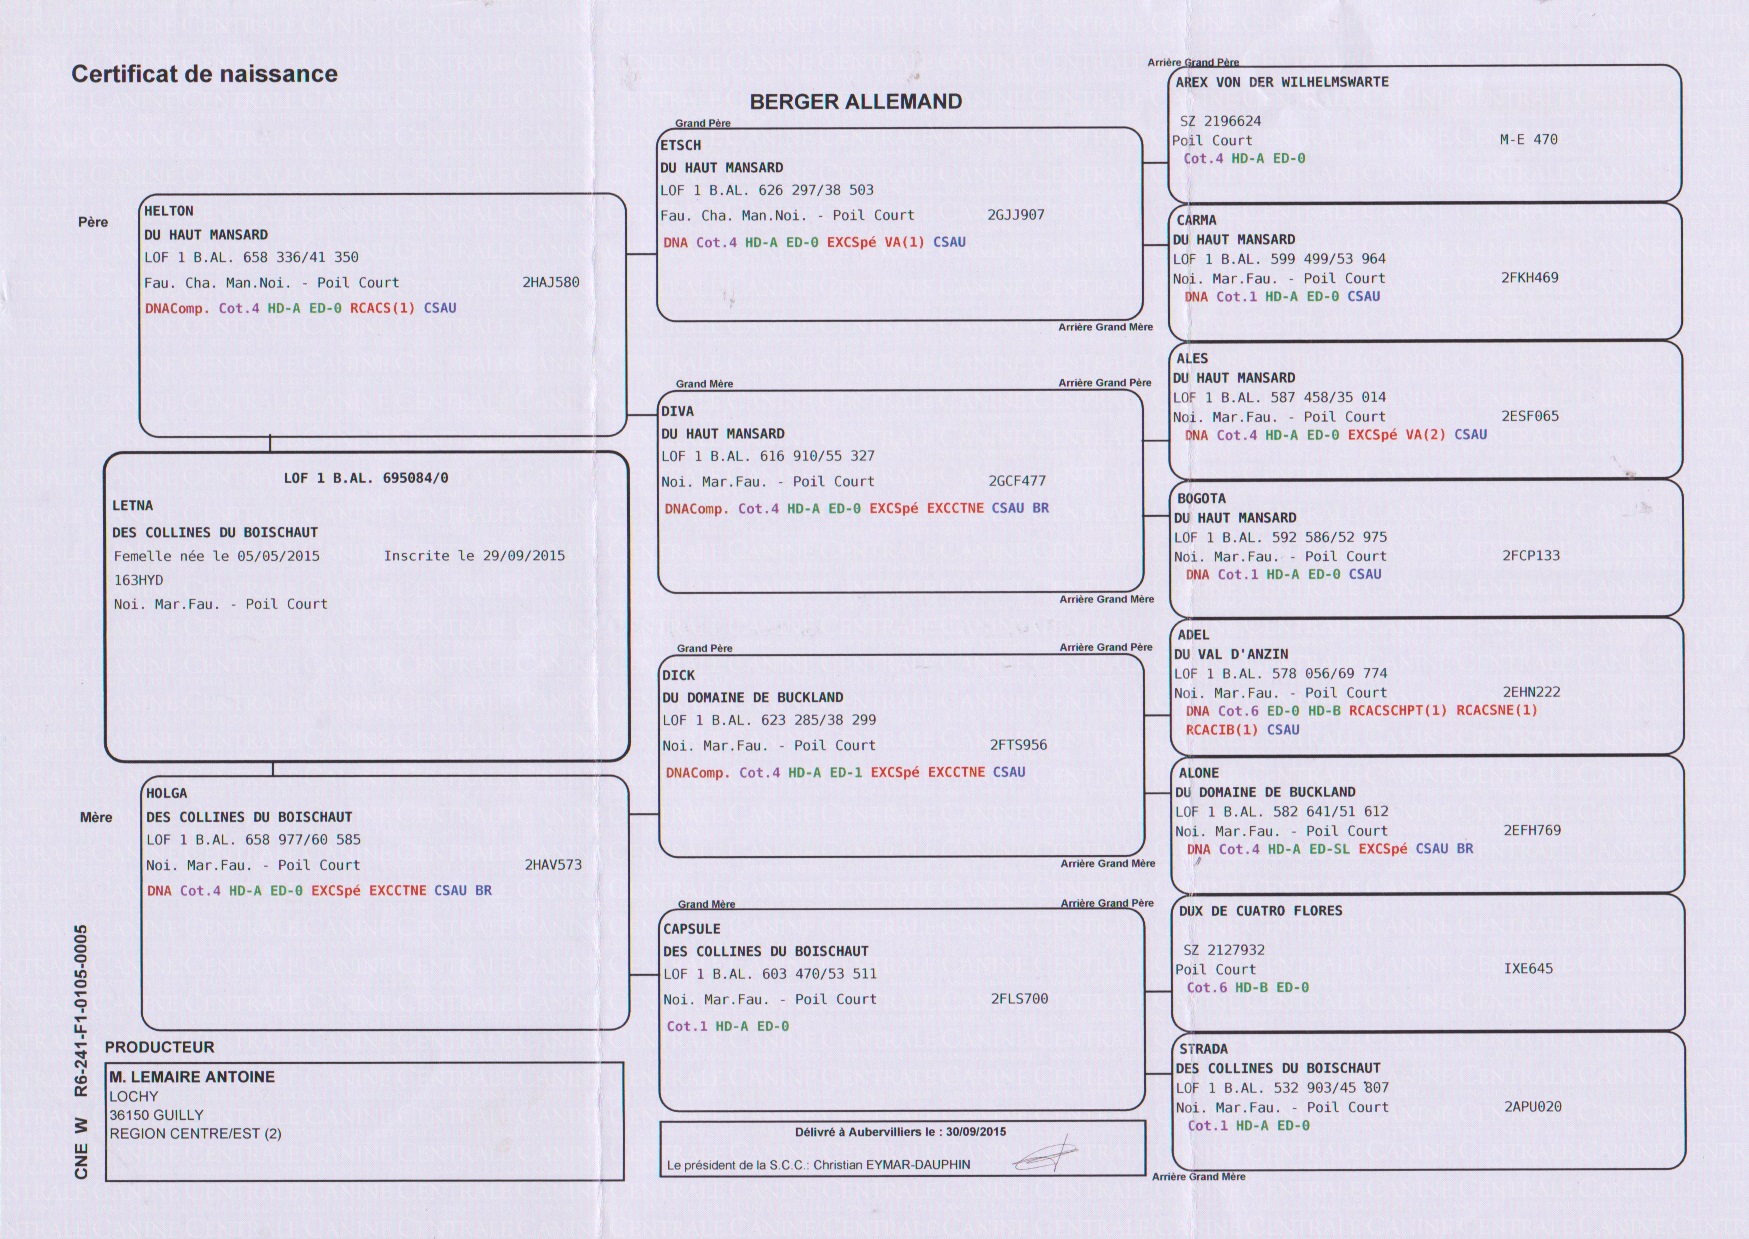 Certificat de naissance
BERGER ALLEMAND
Père
HELTON
DU HAUT MANSARD
LOF 1 B.AL. 658 336/41 350
Fau. Cha. Man.Noi. - Poil Court 2HAJ580
DNAComp. Cot.4 HD-A ED-0 RCACS(1) CSAU
LOF 1 B.AL. 695084/0
LETNA
DES COLLINES DU BOISCHAUT
Femelle née le 05/05/2015 Inscrite le 29/09/2015
163HYD
Noi. Mar.Fau. - Poil Court
Mère
HOLGA
DES COLLINES DU BOISCHAUT
LOF 1 B.AL. 658 977/60 585
Noi. Mar.Fau. - Poil Court 2HAV573
DNA Cot.4 HD-A ED-0 EXCSpé EXCCTNE CSAU BR
CNE W R6-241-F1-0105-0005
PRODUCTEUR
M. LEMAIRE ANTOINE
LOCHY
36150 GUILLY
REGION CENTRE/EST (2)
Grand Père
ETSCH
DU HAUT MANSARD
LOF 1 B.AL. 626 297/38 503
Fau. Cha. Man.Noi. - Poil Court 2GJJ907
DNA Cot.4 HD-A ED-0 EXCSpé VA(1) CSAU
Grand Mère
DIVA
DU HAUT MANSARD
LOF 1 B.AL. 616 910/55 327
Noi. Mar.Fau. - Poil Court 2GCF477
DNAComp. Cot.4 HD-A ED-0 EXCSpé EXCCTNE CSAU BR
Grand Père
DICK
DU DOMAINE DE BUCKLAND
LOF 1 B.AL. 623 285/38 299
Noi. Mar.Fau. - Poil Court 2FTS956
DNAComp. Cot.4 HD-A ED-1 EXCSpé EXCCTNE CSAU
Grand Mère
CAPSULE
DES COLLINES DU BOISCHAUT
LOF 1 B.AL. 603 470/53 511
Noi. Mar.Fau. - Poil Court 2FLS700
Cot.1 HD-A ED-0
Délivré à Aubervilliers le : 30/09/2015
Le président de la S.C.C.: Christian EYMAR-DAUPHIN
Arrière Grand Père
AREX VON DER WILHELMSWARTE
SZ 2196624
Poil Court M-E 470
Cot.4 HD-A ED-0
Arrière Grand Mère
CARMA
DU HAUT MANSARD
LOF 1 B.AL. 599 499/53 964
Noi. Mar.Fau. - Poil Court 2FKH469
DNA Cot.1 HD-A ED-0 CSAU
Arrière Grand Père
ALES
DU HAUT MANSARD
LOF 1 B.AL. 587 458/35 014
Noi. Mar.Fau. - Poil Court 2ESF065
DNA Cot.4 HD-A ED-0 EXCSpé VA(2) CSAU
Arrière Grand Mère
BOGOTA
DU HAUT MANSARD
LOF 1 B.AL. 592 586/52 975
Noi. Mar.Fau. - Poil Court 2FCP133
DNA Cot.1 HD-A ED-0 CSAU
Arrière Grand Père
ADEL
DU VAL D'ANZIN
LOF 1 B.AL. 578 056/69 774
Noi. Mar.Fau. - Poil Court 2EHN222
DNA Cot.6 ED-0 HD-B RCACSCHPT(1) RCACSNE(1)
RCACIB(1) CSAU
Arrière Grand Mère
ALONE
DU DOMAINE DE BUCKLAND
LOF 1 B.AL. 582 641/51 612
Noi. Mar.Fau. - Poil Court 2EFH769
DNA Cot.4 HD-A ED-SL EXCSpé CSAU BR
Arrière Grand Père
DUX DE CUATRO FLORES
SZ 2127932
Poil Court IXE645
Cot.6 HD-B ED-0
STRADA
DES COLLINES DU BOISCHAUT
LOF 1 B.AL. 532 903/45 807
Noi. Mar.Fau. - Poil Court 2APU020
Cot.1 HD-A ED-0
Arrière Grand Mère